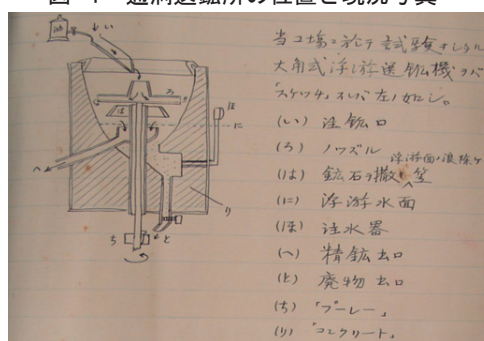 図-4 通洞選鉱所の位置と現況写真
当工場ニ於テ試験サレタル
大角式浮游選鉱機ヲバ
「スケッチ」スレバ左ノ如シ。
(い) 注鉱口
(ろ) ノッズル
浮游面ノ浪除ケ
(は) 鉱石ヲ撒ク笠
(に) 浮游水面
(ほ) 注水器
(へ) 精鉱出口
(と) 廃物出口
(ち) 「プーレー」
(り) 「コンクリート」
い
ろ
は
ほ
に
へ
り
ち
と